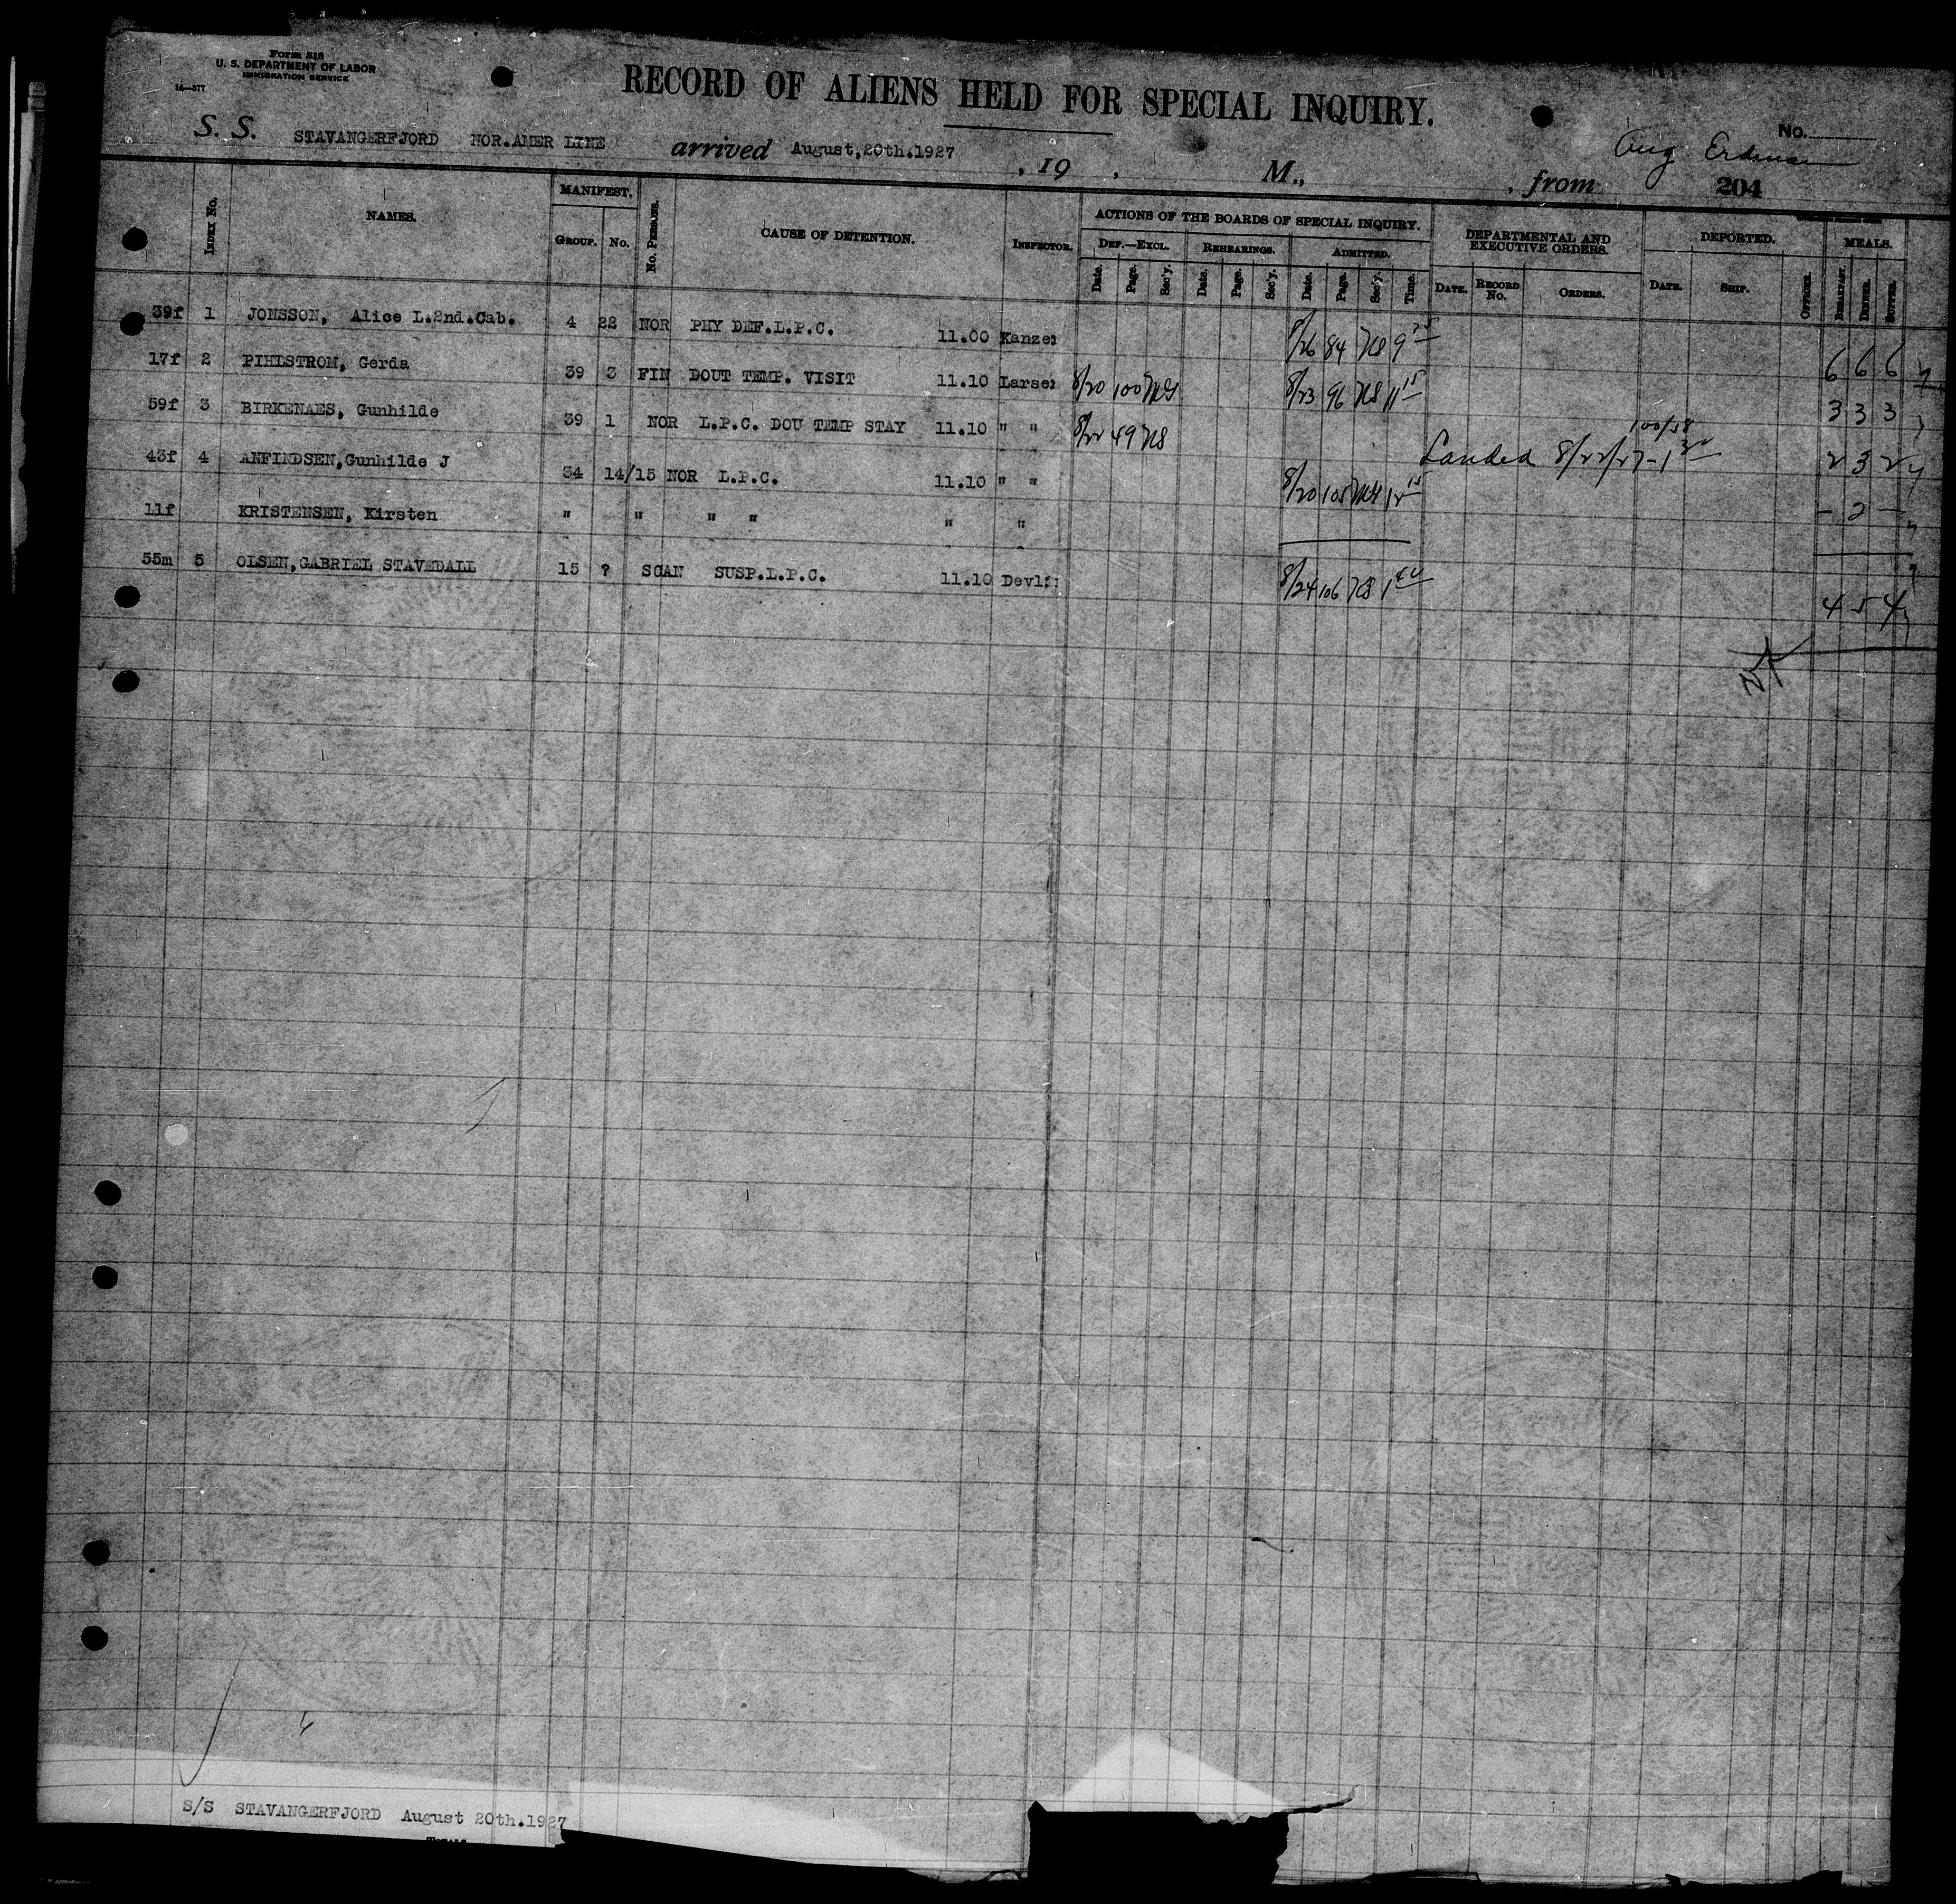 Form 518
U. S. DEPARTMENT OF LABOR
IMMIGRATION SERVICE
14—377
RECORD OF ALIENS HELD FOR SPECIAL INQUIRY.
No.
S. S. STAVANGERFJORD NOR.AMER LINE arrived August,20th.1927 , 19 . M., , from 204
Aug Erdman
Index No. NAMES. MANIFEST. Group. No. No. Persons. CAUSE OF DETENTION. Inspector.
ACTIONS OF THE BOARDS OF SPECIAL INQUIRY.
Def.—Excl. Rehearings. Admitted.
Date. Page. Sec'y. Date. Page. Sec'y. Date. Page. Sec'y. Time.
DEPARTMENTAL AND EXECUTIVE ORDERS.
Date. Record No. Orders.
DEPORTED.
Date. Ship. Officer.
MEALS.
Breakfast. Dinner. Supper.
39f 1 JONSSON, Alice L.2nd.Cab. 4 22 NOR PHY DEF.L.P.C. 11.00 Kanze 8/26 84 6 6 6
17f 2 PIHLSTROM, Gerda 39 3 FIN DOUT TEMP. VISIT 11.10 Larse 8/20 100 8/23 96 11 15 3 3 3
59f 3 BIRKENAES, Gunhilde 39 1 NOR L.P.C. DOU TEMP STAY 11.10 " " 8/22 49 Landed 8/22/27 2 3 2
43f 4 ANFINDSEN,Gunhilde J 34 14/15 NOR L.P.C. 11.10 " " 8/20 105 - 2 -
11f KRISTENSEN, Kirsten " " " " " "
55m 5 OLSEN,GABRIEL STAVEDALL 15 ? SCAN SUSP.L.P.C. 11.10 Devl 8/24 106 1 40 4 5 4
S/S STAVANGERFJORD August 20th.1927